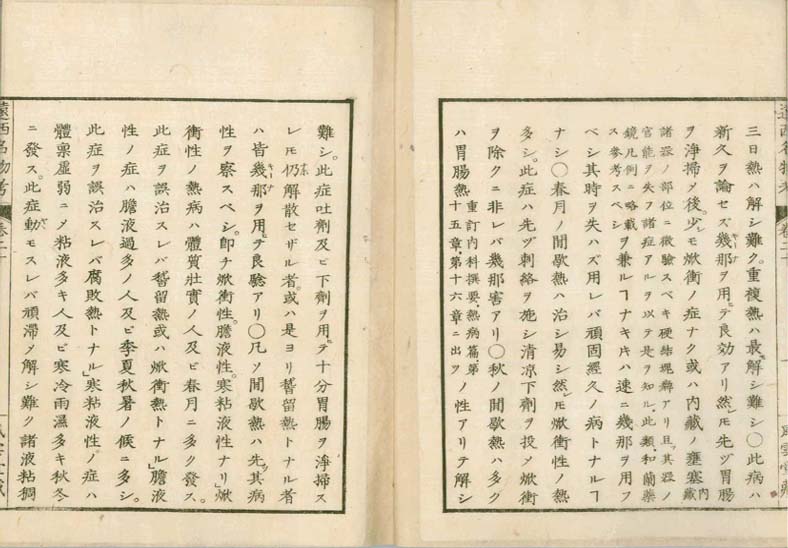 三日熱ハ解シ難ク。重複熱ハ最解シ難シ〇此病ハ
新久ヲ論セズ幾那ヲ用テ良効アリ然レモ先ヅ胃腸
ヲ淨掃メ後。少シモ焮衝ノ症ナク或ハ内藏ノ壅塞 内藏
諸器ノ部位ニ徴驗スベキ硬結塊癖アリ且ツ其器ノ
官能ヲ失フ諸症アルヲ以テ是ヲ知ル。此類。和蘭藥
鏡凡例ニ略載ス参考スベシ ヲ兼ルヿナキ片ハ速ニ幾那ヲ用フ
ベシ其時ヲ失ハズ用レバ頑固經久ノ病トナルヿ
ナシ〇春月ノ間歇熱ハ治シ易シ然レモ焮衝性ノ熱
多シ。此症ハ先ヅ刺絡ヲ施シ清凉下劑ヲ投メ焮衝
ヲ除クニ非レバ幾那害アリ〇秋ノ間歇熱ハ多ク
ハ胃腸熱 重訂内科撰要。熱病篇。第十五章。第十六章ニ出ツ ノ性アリテ解シ
難シ。此症吐劑及ビ下劑ヲ用テ十分胃腸ヲ淨掃ス
レモ仍解散セザル者。或ハ是ヨリ稽留熱トナル者
ハ皆幾那ヲ用テ良驗アリ〇凡ソ間歇熱ハ先ヅ其病
性ヲ察スベシ。卽チ焮衝性。膽液性。寒粘液性ナリ」焮
衝性ノ熱病ハ體質壯實ノ人及ビ春月ニ多ク發ス。
此症ヲ誤治スレバ稽留熱或ハ焮衝熱トナル」膽液
性ノ症ハ膽液過多ノ人及ビ季夏秋暑ノ候ニ多シ。
此症ヲ誤治スレバ腐敗熱トナル」寒粘液性ノ症ハ
體禀虛弱ニメ粘液多キ人及ビ寒冷雨濕多キ秋冬
ニ發ス。此症動モスレバ頑滯メ解シ難ク諸液粘稠
遠西名物考